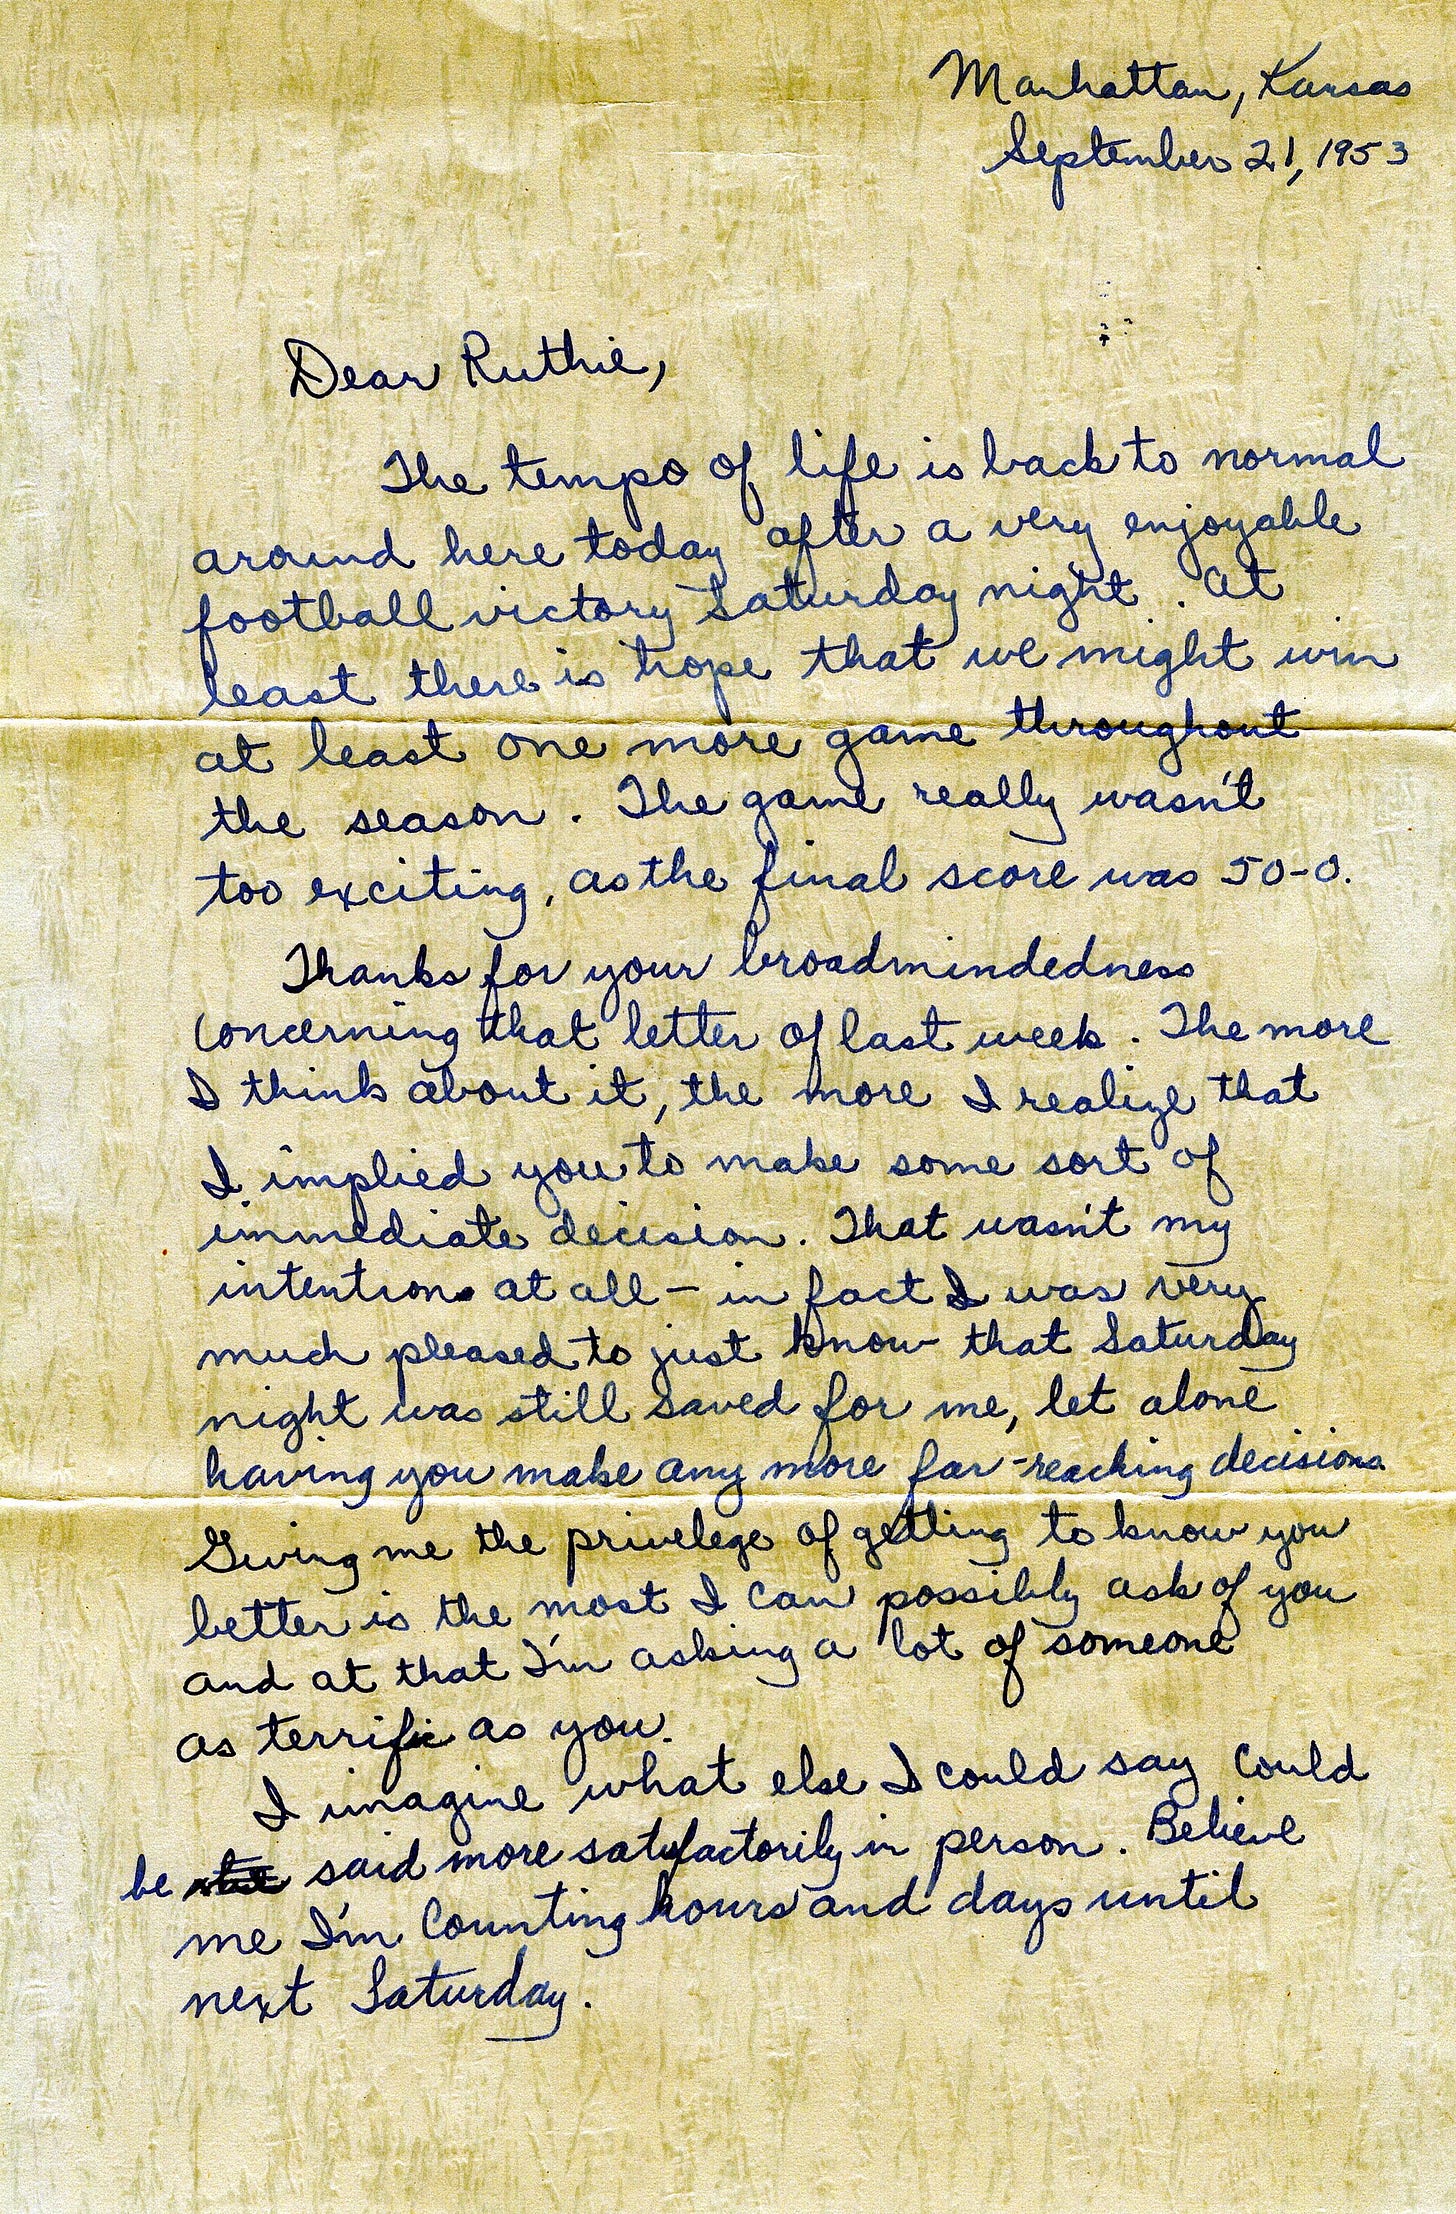 Manhattan, Kansas
September 21, 1953
Dear Ruthie,
The tempo of life is back to normal
around here today after a very enjoyable
football victory Saturday night. At
least there is hope that we might win
at least one more game throughout
the season. The game really wasn't
too exciting, as the final score was 50-0.
Thanks for your broadmindedness
concerning that letter of last week. The more
I think about it, the more I realize that
I implied you to make some sort of
immediate decision. That wasn't my
intention at all - in fact I was very
much pleased to just know that Saturday
night was still saved for me, let alone
having you make any more far-reaching decisions
Giving me the privelege of getting to know you
better is the most I can possibly ask of you
and at that I'm asking a lot of someone
as terrific as you.
I imagine what else I could say could
be said more satisfactorily in person. Believe
me I'm counting hours and days until
next Saturday.